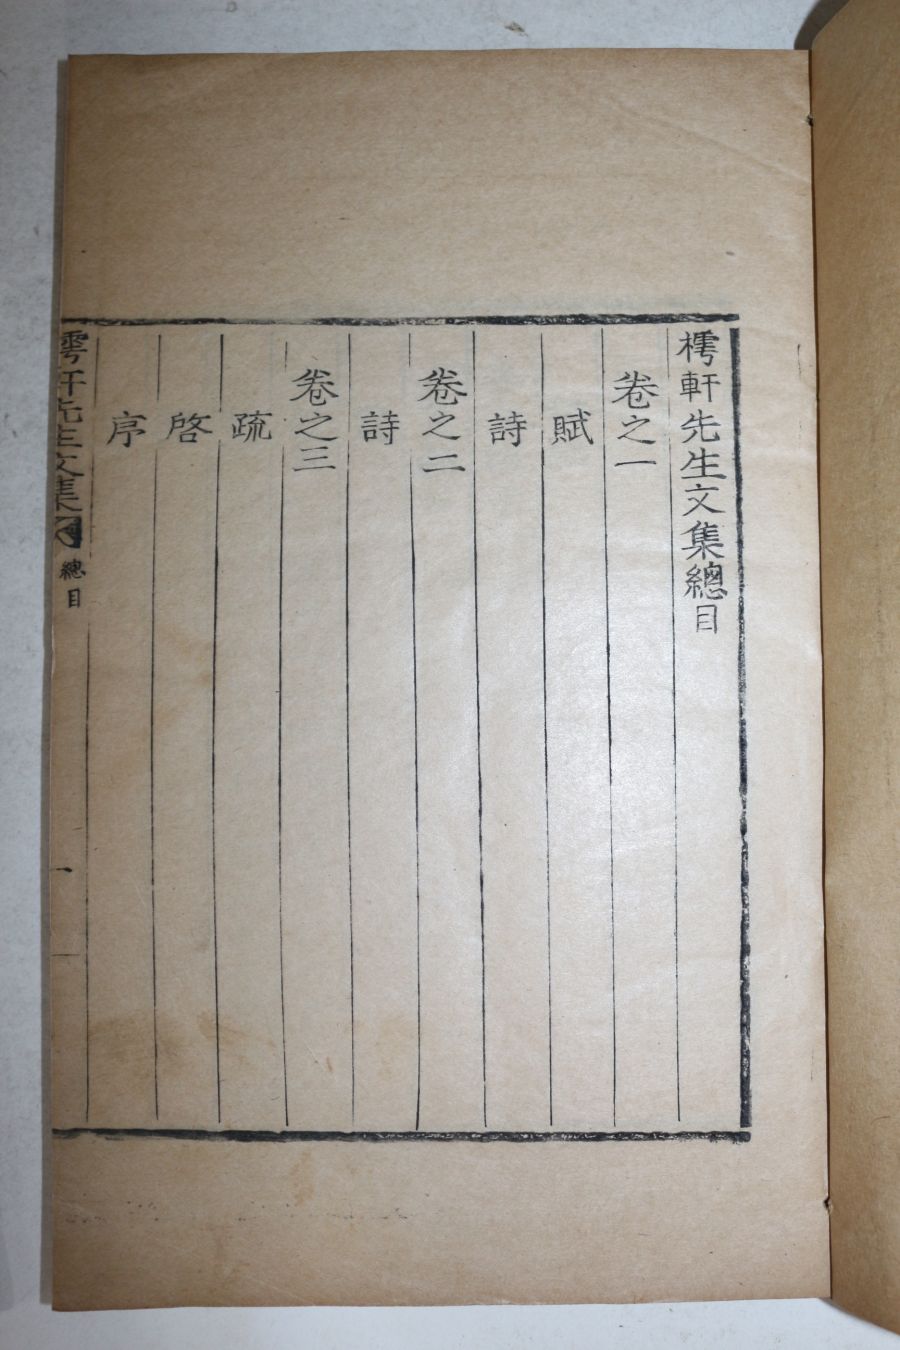 樗軒先生文集總目
卷之一
賦
詩
卷之二
詩
卷之三
疏
啓
序
樗軒先生文集
總目
一